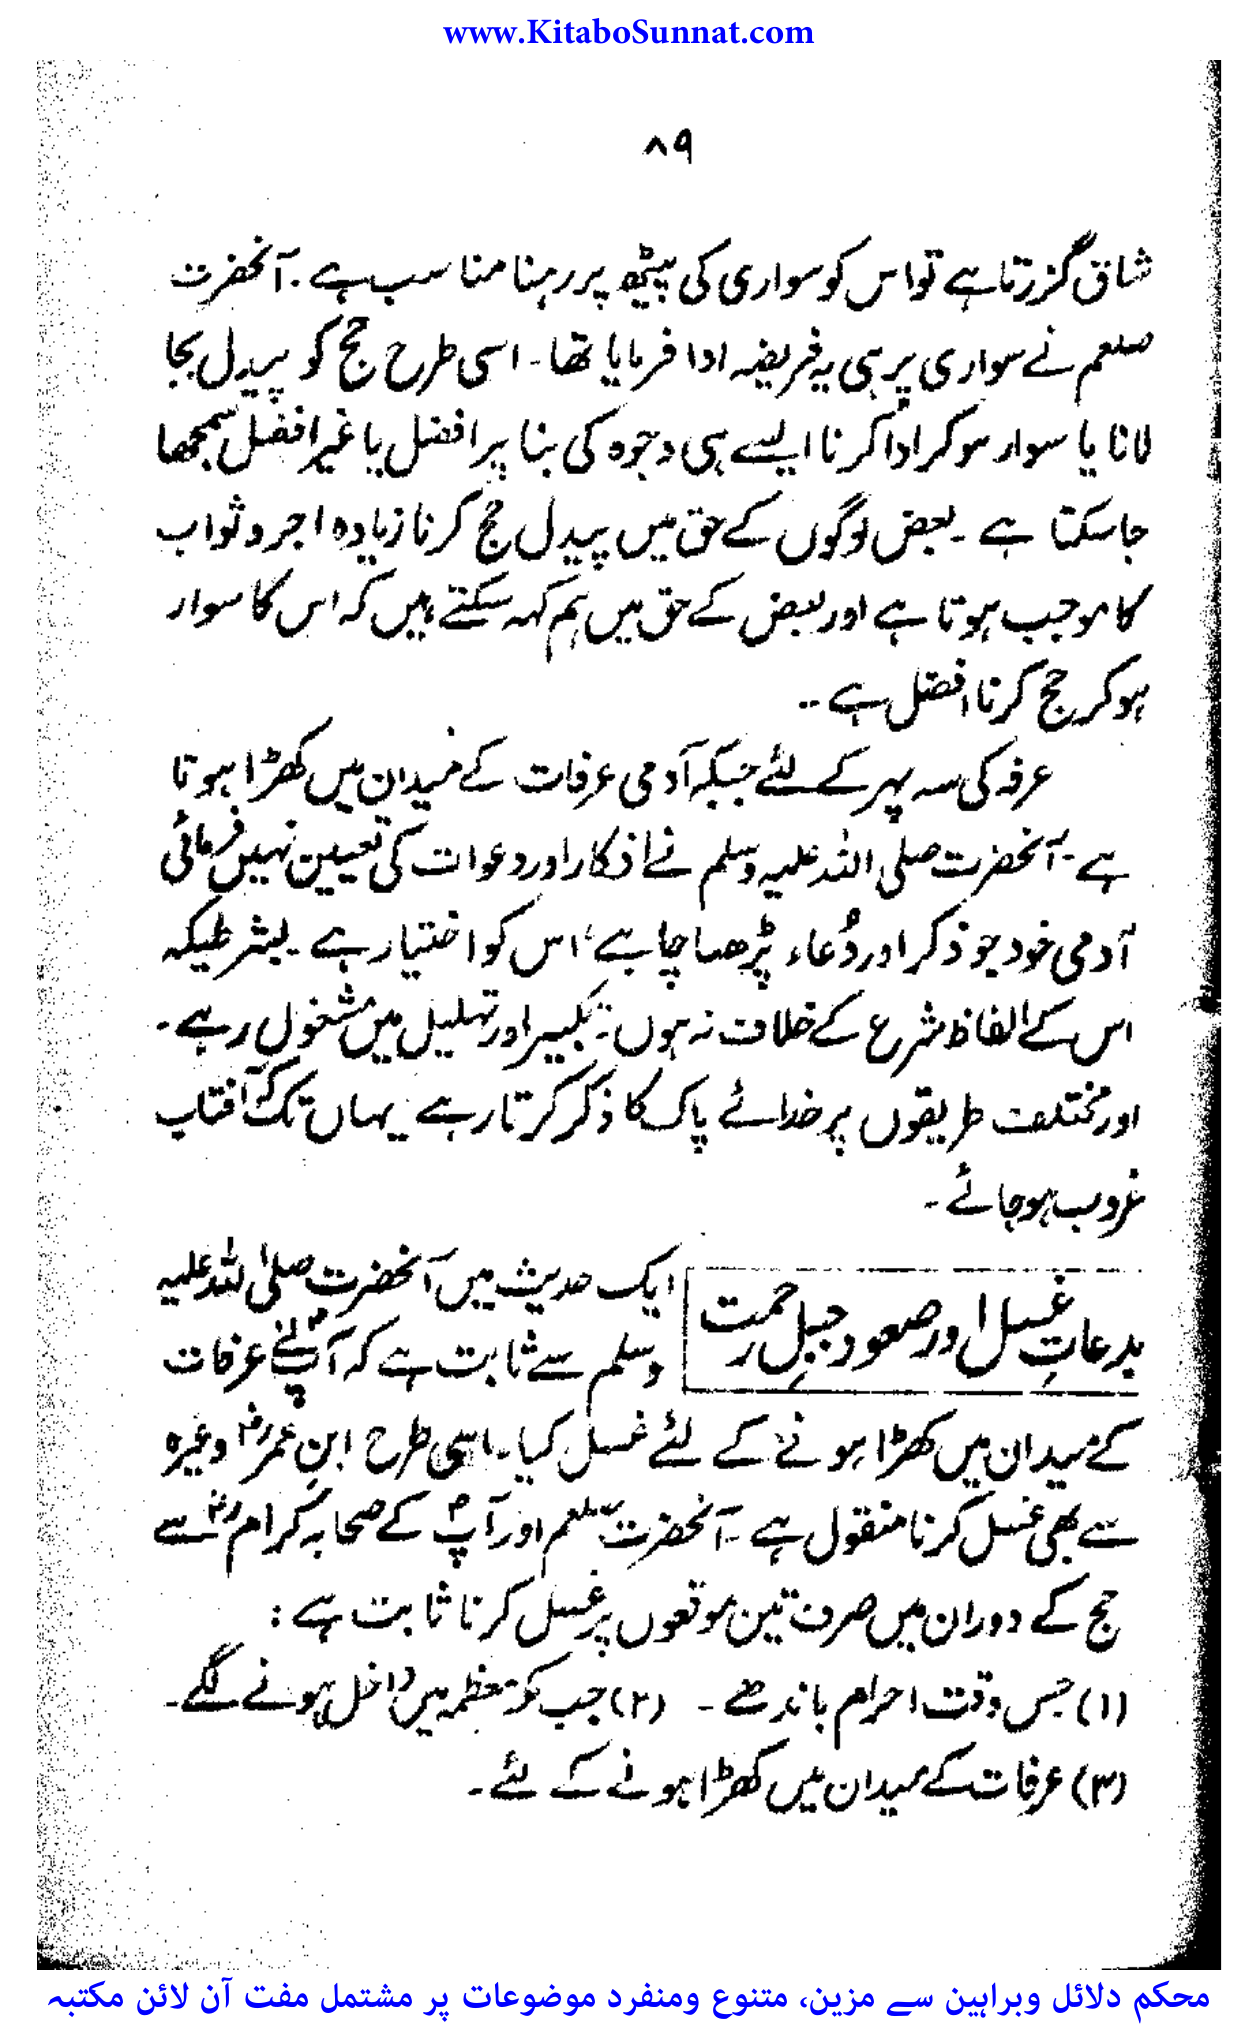 www.KitaboSunnat.com
۸۹
شاق گزرتا ہے تو اس کو سواری کی پیٹھ پر رہنا مناسب ہے ۔ آنحضرت
صلعم نے سواری پر ہی یہ فریضہ ادا فرمایا تھا ۔ اسی طرح حج کو پیدل بجا
لانا یا سوار ہو کر ادا کرنا ایسے ہی وجوہ کی بنا پر افضل یا غیر افضل سمجھا
جا سکتا ہے ۔ بعض لوگوں کے حق میں پیدل حج کرنا زیادہ اجر و ثواب
کا موجب ہوتا ہے اور بعض کے حق میں ہم کہہ سکتے ہیں کہ اس کا سوار
ہو کر حج کرنا افضل ہے ۔۔
عرفہ کی سہ پہر کے لئے جبکہ آدمی عرفات کے میدان میں کھڑا ہوتا
ہے ۔ آنحضرت صلی اللہ علیہ وسلم نے اذکار اور دعوات کی تعیین نہیں فرمائی
آدمی خود جو ذکر اور دُعاء پڑھنا چاہے، اس کو اختیار ہے ۔ بشرطیکہ
اس کے الفاظ شرع کے خلاف نہ ہوں ۔ تکبیر اور تہلیل میں مشغول رہے ۔
اور مختلف طریقوں پر خدائے پاک کا ذکر کرتا رہے ۔ یہاں تک کہ آفتاب
غروب ہو جائے ۔
بدعاتِ غسل اور صعود جبلِ رحمت
ایک حدیث میں آنحضرت صلی اللہ علیہ
وسلم سے ثابت ہے کہ آپؐ نے عرفات
کے میدان میں کھڑا ہونے کے لئے غسل کیا ۔ اسی طرح ابنِ عمرؓ وغیرہ
سے بھی غسل کرنا منقول ہے ۔ آنحضرت صلعم اور آپؐ کے صحابہ کرامؓ سے
حج کے دوران میں صرف تین موقعوں پر غسل کرنا ثابت ہے :
(۱) جس وقت احرام باندھے ۔ (۲) جب مکہ معظمہ میں داخل ہونے لگے ۔
(۳) عرفات کے میدان میں کھڑا ہونے کے لئے ۔
محکم دلائل وبراہین سے مزین، متنوع ومنفرد موضوعات پر مشتمل مفت آن لائن مکتبہ